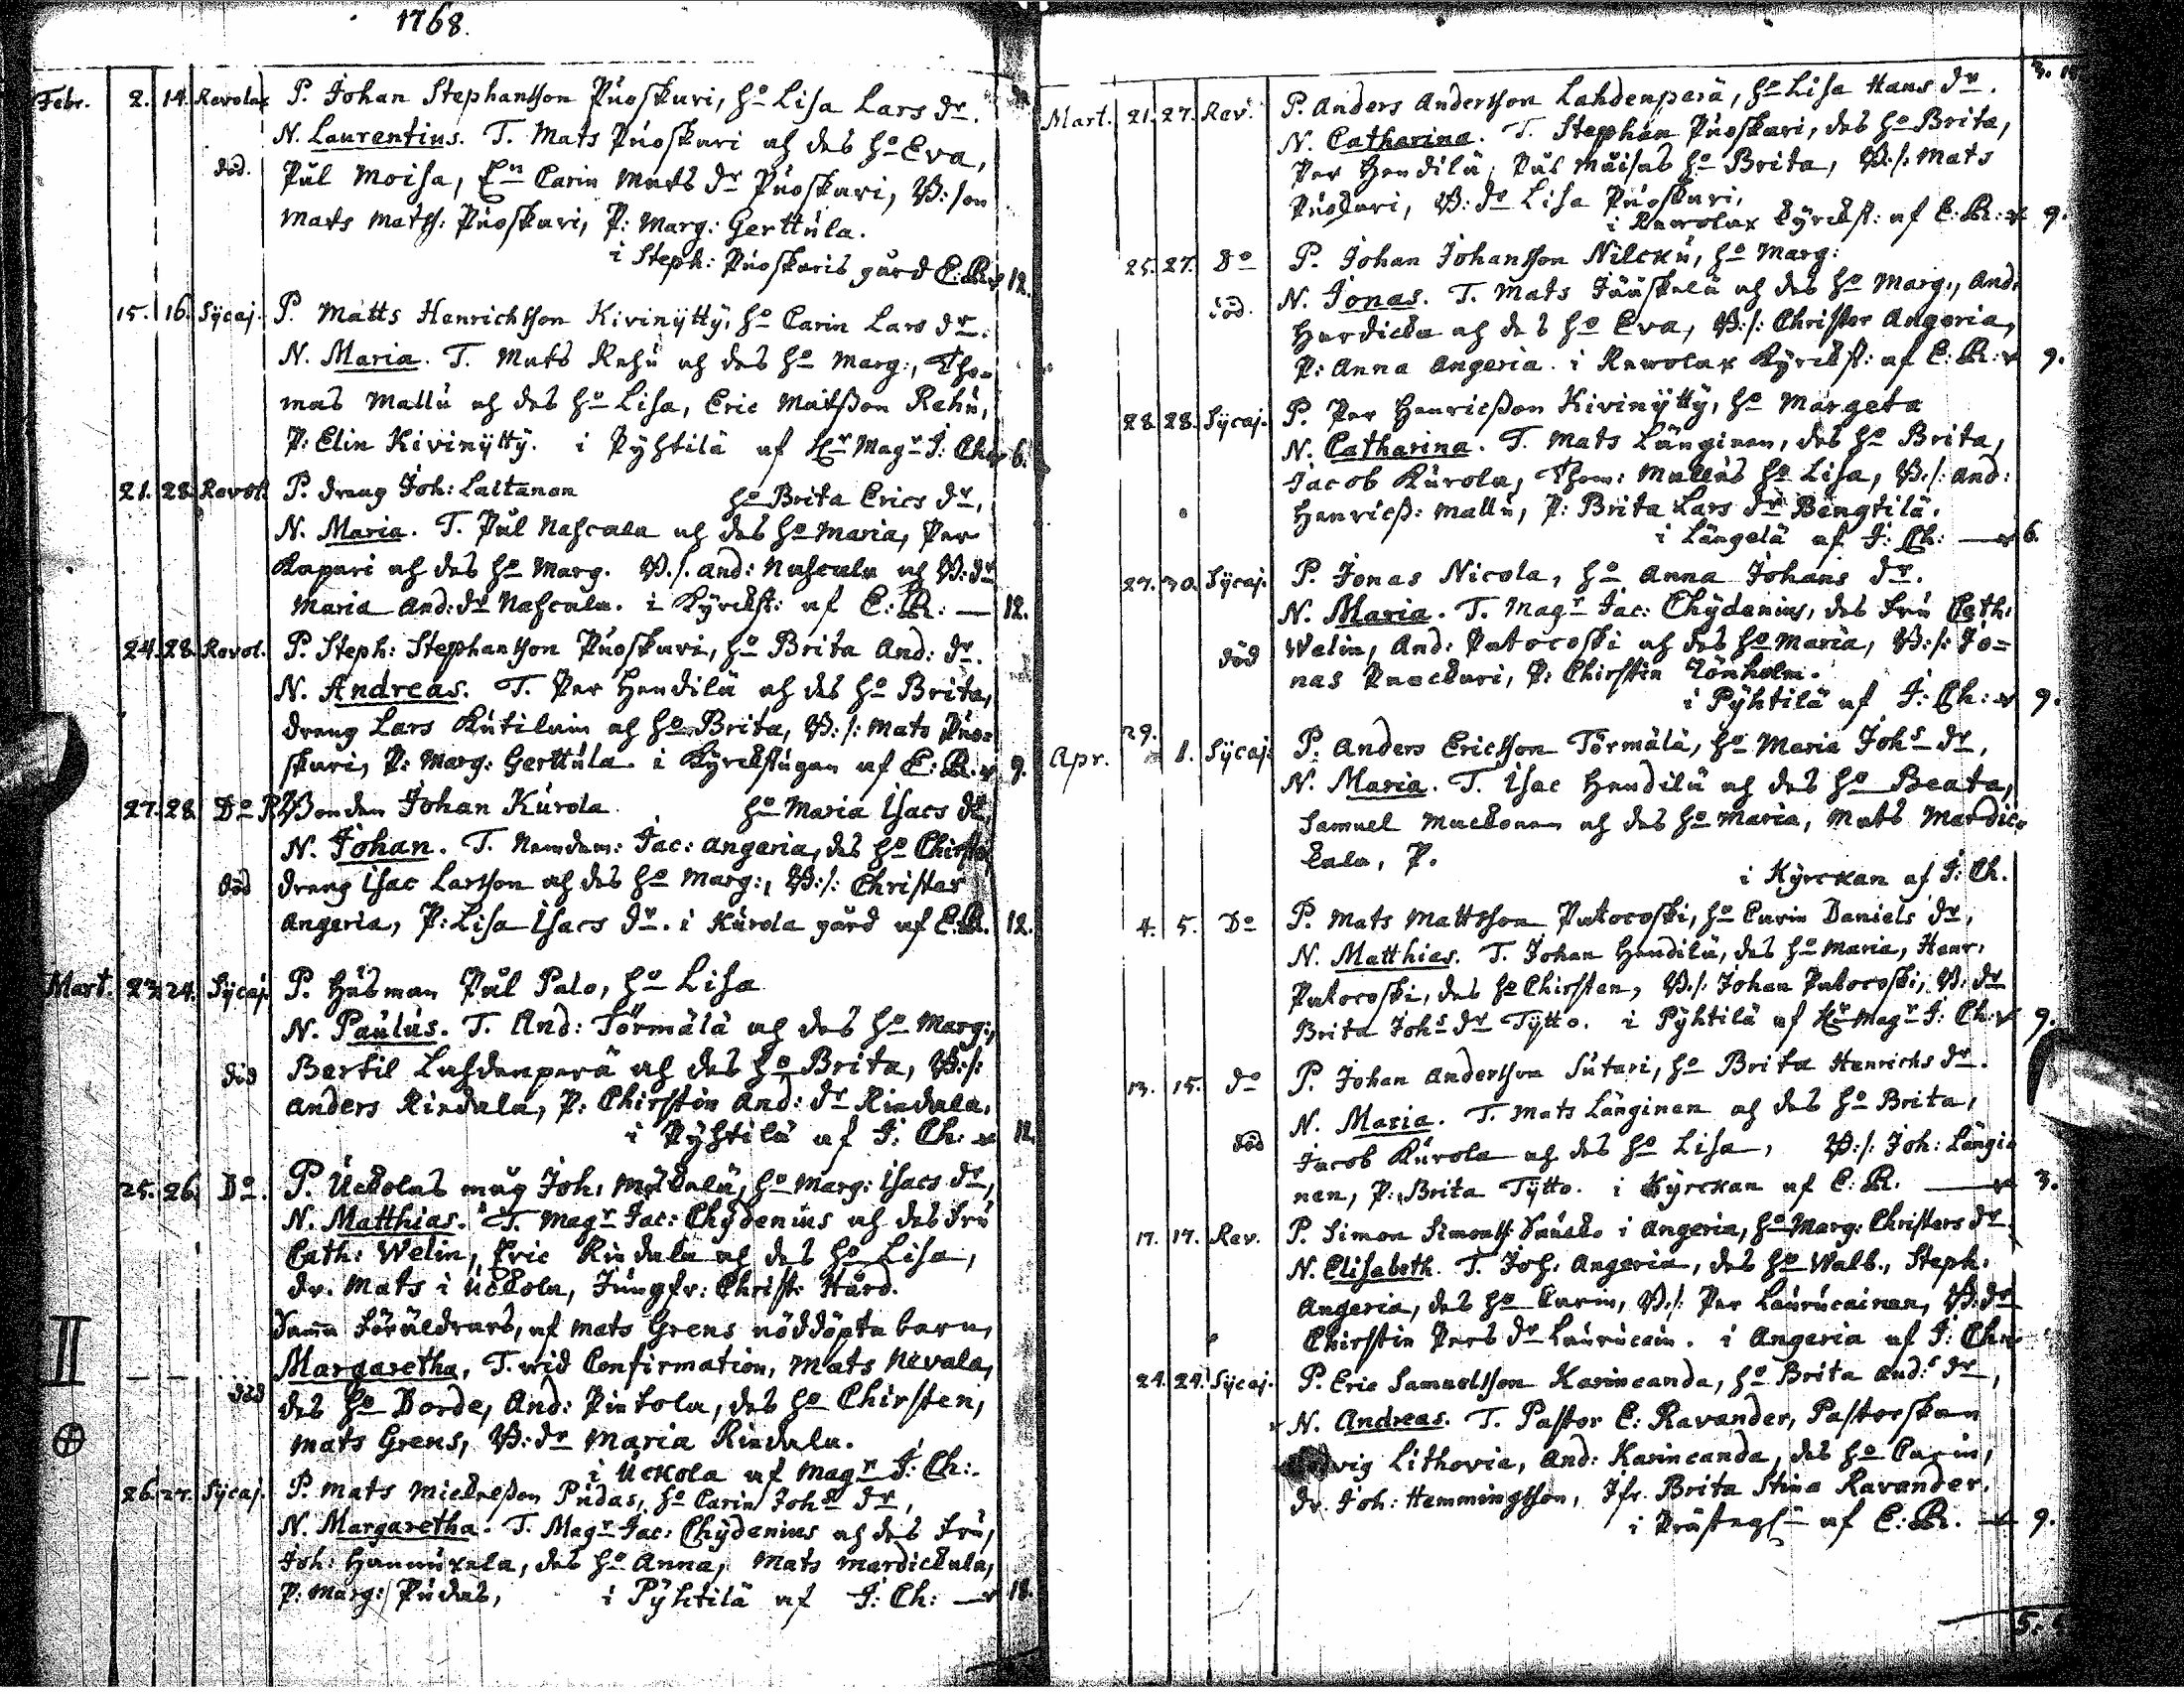 1768.
Febr. 2. 14. Revolax P. Johan Stephansson Puoskari, ho Lisa Lars dr.
N. Laurentius. T. Mats Puoskari ah des ho Eva,
död. Pål Moisa, En Carin Mats dr Puoskari, B: son
Mats Matss: Puoskari, P: Marg: Gerttula.
i Steph: Puoskaris gård E: R. 12.
15. 16. Sijcaj. P. Matts Henrichsson Kivinÿttÿ, ho Carin Lars dr.
N. Maria. T. Mats Rahu ah des ho Marg:, Tho=
mas Mallu ah des ho Lisa, Eric Matsson Rahu,
P: Elin Kivinÿttÿ. i Pÿhtilä af Hr Magr J: Ch: 6.
21. 28. Revol. P. dräng Joh: Laitanen ho Brita Erics dr,
N. Maria. T. Pål Nahcala ah des ho Maria, Per
Kapari ah des ho Marg. B. s. And: Nahcala ah B: dr
Maria And: dr Nahcala. i Kÿrckst: af E: R: — 12.
24. 28. Revol. P. Steph: Stephansson Puoskari, ho Brita And: dr.
N. Andreas. T. Per Hendilä ah des ho Brita,
dräng Lars Kutilain ah ho Brita, B: s: Mats Puo=
skari, P: Marg: Gerttula i Kÿrckstugan af E: R. 9.
27. 28. Do P. Bonden Johan Kurola ho Maria Isacs dr,
N. Johan. T. Nämdem: Jac: Angeria, des ho Chirstin,
död dräng Isac Larsson ah des ho Marg:, B: s: Christer
Angeria, P: Lisa Isacs dr. i Kurola gård af E: R. 12.
Mart. 23. 24. Sijcaj. P. Husman Pål Palo, ho Lisa
N. Paulus. T. And: Törmälä ah des ho Marg:,
död Bertil Lahdenperä ah des ho Brita, B: s:
Anders Rindala, P: Chirstin And: dr Rindala.
i Pÿhtilä af J: Ch: 12.
25. 26. Do. P. Uckolas måg Joh: Mäkälä, ho Marg: Isacs dr,
N. Matthias. T. Magr Jac: Chÿdenius ah des fru
Cath: Welin, Eric Rindala ah des ho Lisa,
dr. Mats i Uckola, Jungfr: Christ: Hård.
Samma föräldrars, af Mats Grens nöddöpta barn,
Margaretha, T. wid Confirmation, Mats Nevala,
död des ho Dorde, And: Pintola, des ho Chirsten,
Mats Grens, B: dr Maria Rindala.
i Uckola af Magr J: Ch:.
26. 27. Sijcaj. P. Mats Mickelsson Pudas, ho Carin Johs dr,
N. Margaretha. T. Magr Jac: Chÿdenius ah des fru,
Joh: Hannuxela, des ho Anna, Mats Mardickala,
P: Marg: Pudas, i Pÿhtilä af J: Ch: — 18.
Mart. 21. 27. Rev. P. Anders Andersson Lahdenperä, ho Lisa Hans dr.
N. Catharina. T. Stephan Puoskari, des ho Brita,
Per Hendilä, Pås Måisas ho Brita, B: s: Mats
Puoskari, B: dr Lisa Puoskari,
i Rewolax Kÿrckst: af E: R: 9.
25. 27. Do P. Johan Johansson Nilcku, ho Marg:
N. Jonas. T. Mats Jääskelä ah des ho Marg:, And:
död. Hardicka ah des ho Eva, B: s: Christer Angeria,
P: Anna Angeria. i Rewolax Kÿrckst: af E: R: 9.
28. 28. Sijcaj. P. Per Henricsson Kivinÿttÿ, ho Margeta
N. Catharina. T. Mats Länginen, des ho Brita,
Jacob Kurola, Thom: Mallus ho Lisa, B: s: And:
Henricss: Mallu, P: Brita Lars dr Bengtilä.
i Längelä af J: Ch: — 6.
27. 30. Sijcaj. P. Jonas Nicola, ho Anna Johans dr.
N. Maria. T. Magr Jac: Chÿdenius, des fru Cath:
Welin, And: Patocoski ah des ho Maria, B: s: Jo=
död nas Puockari, P: Chirstin Lönholm.
i Pÿhtilä af J: Ch: 9.
Apr. 29. 1. Sijcaj. P. Anders Ericsson Törmälä, ho Maria Johs dr,
N. Maria. T. Isac Hendilä ah des ho Beata,
Samuel Muckonen ah des ho Maria, Mats Mardic=
kala, P.
i Kÿrckan af J: Ch.
4. 5. Do P. Mats Mattsson Patocoski, ho Carin Daniels dr,
N. Matthias. T. Johan Hendilä, des ho Maria, Henr.
Patocoski, des ho Chirsten, B: s: Johan Patocoski, B. dr
Brita Johs dr Tÿtto. i Pÿhtilä af Hr Magr J: Ch: 9.
13. 15. do P. Johan Andersson Sutari, ho Brita Henrichs dr.
N. Maria. T. Mats Länginen ah des ho Brita,
död Jacob Kurola ah des ho Lisa, B: s: Joh: Längi=
nen, P: Brita Tÿtto. i Kÿrckan af E: R. — 3.
17. 17. Rev. P. Simon Simonss: Saucko i Angeria, ho Marg: Christers dr.
N. Elisabeth. T. Joh: Angeria, des ho Walb., Steph:
Angeria, des ho Carin, B: s: Per Laurucainen, B: dr
Chirstin Pers dr Laurucain. i Angeria af J: Ch:
24. 24. Sijcaj. P. Eric Samuelsson Karincanda, ho Brita And:s dr,
N. Andreas. T. Pastor E: Ravander, Pastorskan
Lithovia, And: Karincanda, des ho Carin,
dr. Joh: Hemmingsson, Jfr. Brita Stina Ravander.
i Prästegln af E: R. — 9.